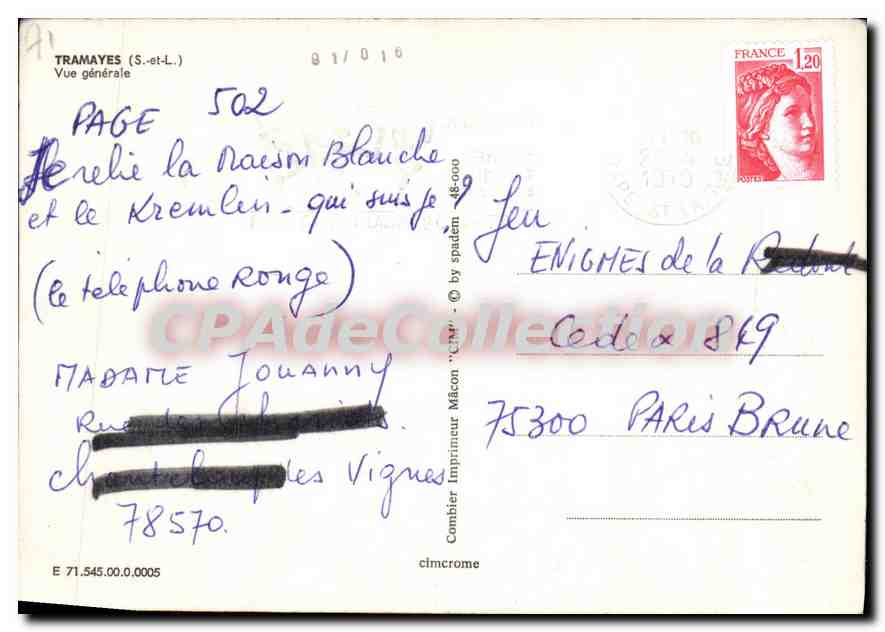 71
TRAMAYES (S.-et-L.)
Vue générale
81/016
FRANCE 1,20
POSTES
PAGE 502
Je relie la Maison Blanche
et le Kremlin - qui suis je?
(le téléphone Rouge)
MADAME JOUANNY
Rue
des Vignes
78570.
E 71.545.00.0.0005
Combier Imprimeur Mâcon "CIM" - © by spadem - 48-000
cimcrome
Jeu
ENIGMES de la
Cedex 849
75300 PARIS BRUNE
CPAdeCollection